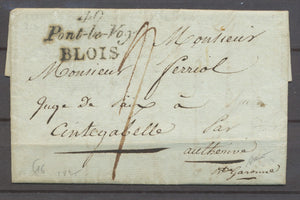 40
Pont-le-Voy
BLOIS
Monsieur
Monsieur Perriol
juge de Paix à
Cintegabelle Par
autherive
hte Garonne